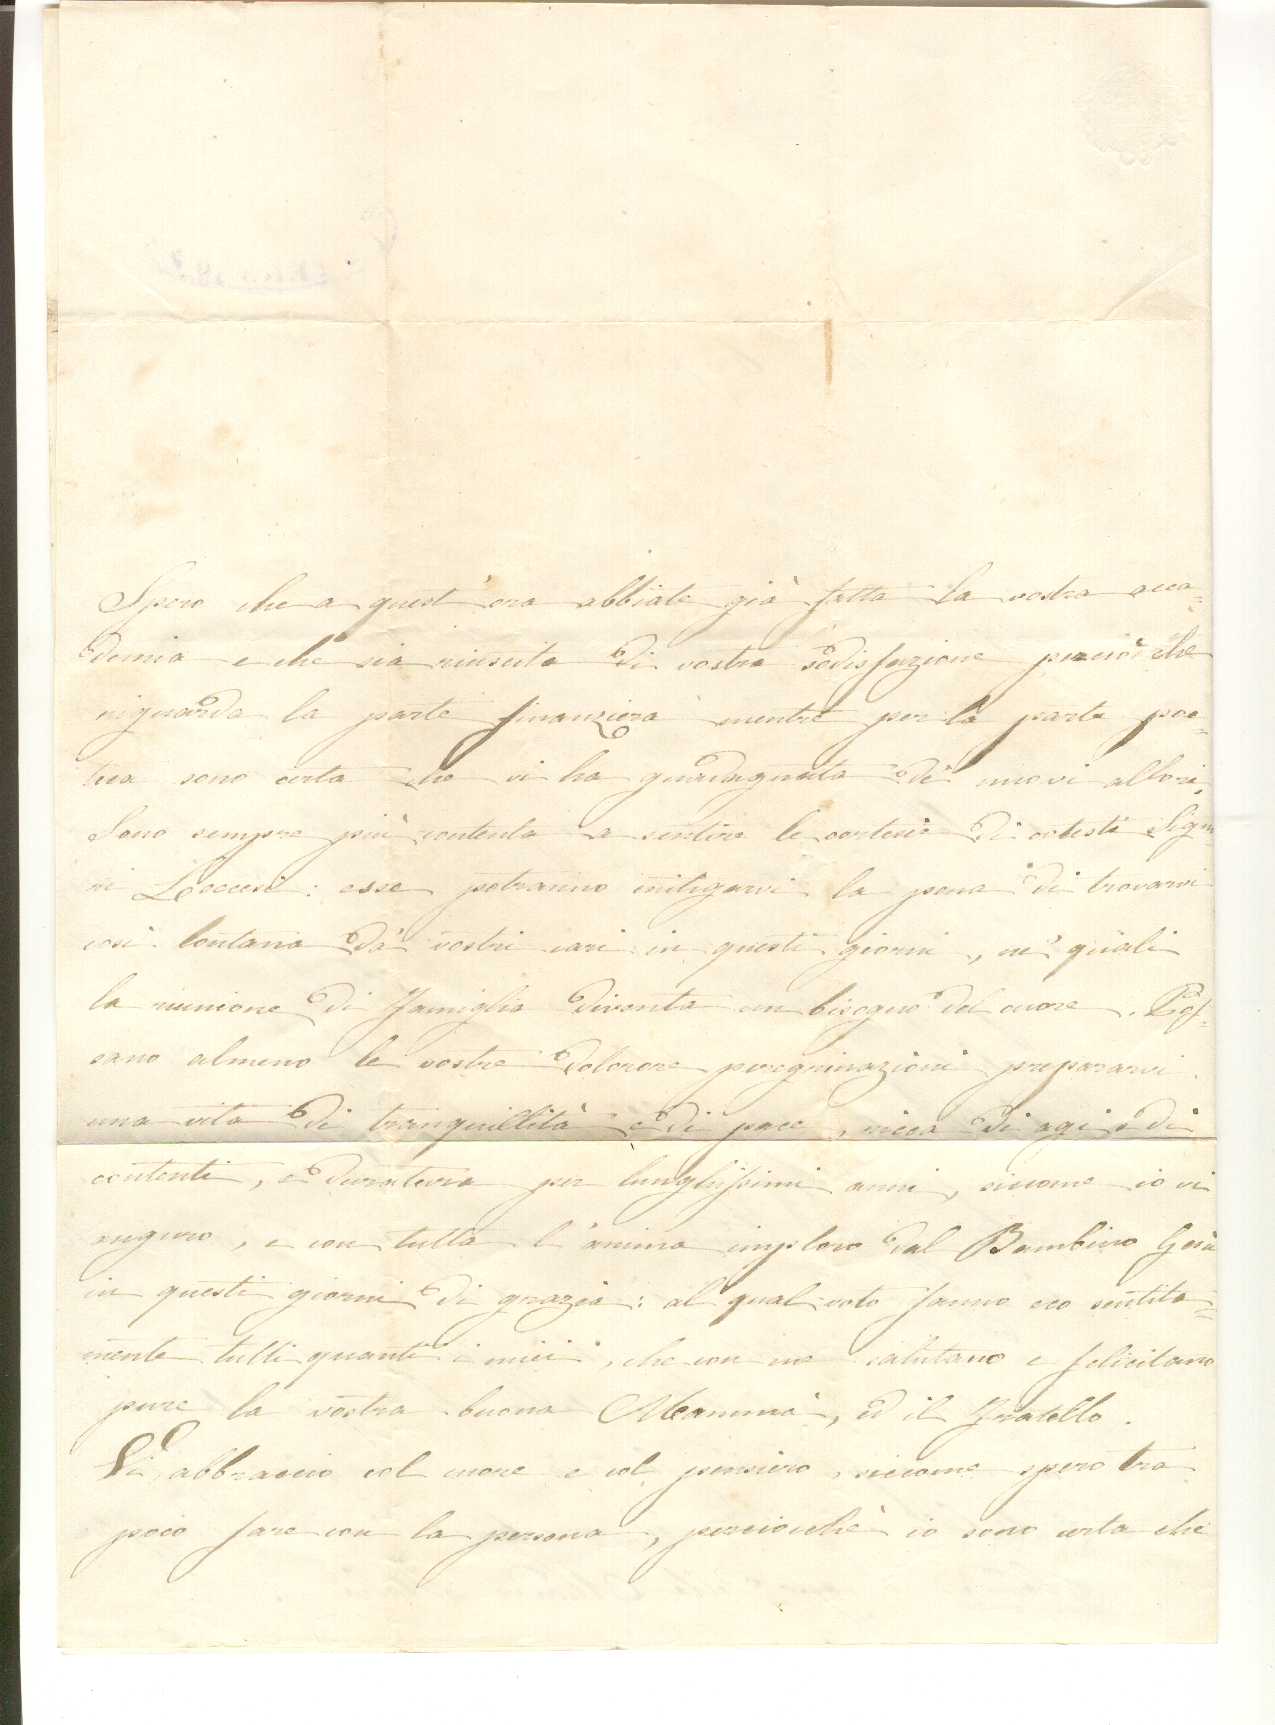 Spero che a quest'ora abbiate già fatta la vostra acca=
demia e che sia riuscita di vostra sodisfazione perciò che
riguarda la parte finanziera mentre per la parte poe=
tica sono certa che vi ha guadagnata de' nuovi allori.
Sono sempre più contenta a sentire le cortesie di cotesti Signo=
ri Leccesi: esse potranno mitigarvi la pena di trovarvi
così lontana da' vostri cari in questi giorni, ne' quali
la riunione di famiglia diventa un bisogno del cuore. Pos=
sano almeno le vostre dolorose peregrinazioni prepararvi
una vita di tranquillità e di pace, ricca di agi e di
contenti, e duratura per lunghissimi anni, siccome io vi
auguro, e con tutta l'anima imploro dal Bambino Gesù
in questi giorni di grazia: al qual voto fanno eco sentita=
mente tutti quanti i miei, che con me salutano e felicitano
pure la vostra buona Mamma, ed il Fratello.
Vi abbraccio col cuore e col pensiero, siccome spero tra
poco fare con la persona, perciocchè io sono certa che